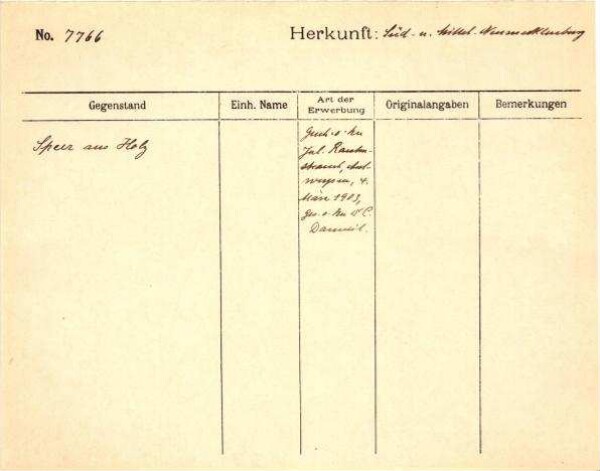 No. 7766
Herkunft: Süd- u. Mittel-Neumecklenburg
Gegenstand
Einh. Name
Art der
Erwerbung
Originalangaben
Bemerkungen
Speer aus Holz
Gesch. v. Hn
Jul. Rauten-
strauch, Ant-
werpen, 4.
März 1903,
ges. v. Hn